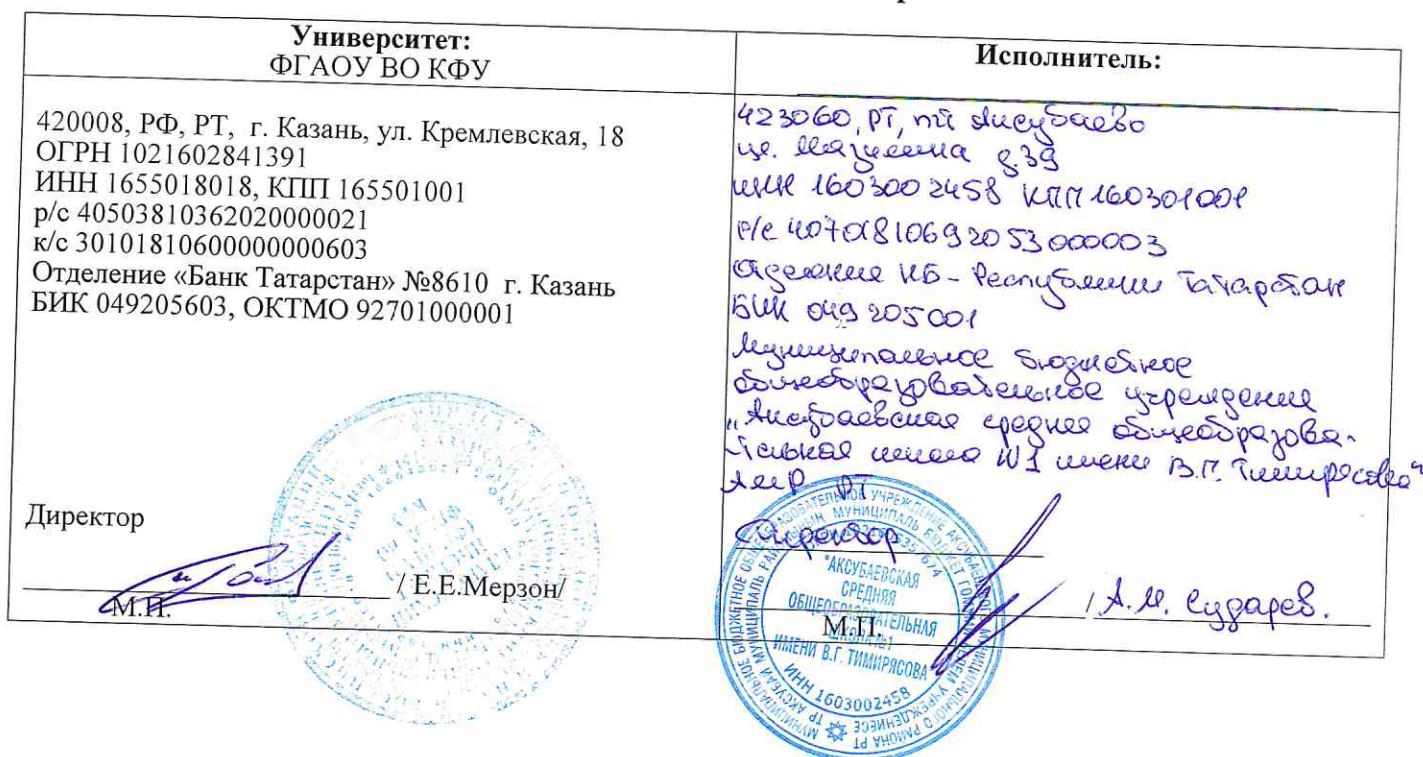 Университет:
ФГАОУ ВО КФУ
420008, РФ, РТ, г. Казань, ул. Кремлевская, 18
ОГРН 1021602841391
ИНН 1655018018, КПП 165501001
р/с 40503810362020000021
к/с 30101810600000000603
Отделение «Банк Татарстан» №8610 г. Казань
БИК 049205603, ОКТМО 92701000001
Директор
/ Е.Е.Мерзон/
М.П.
Исполнитель:
423060, РТ, пгт Аксубаево
ул. Мазилина д.39
ИНН 1603002458 КПП 160301001
р/с 40701810692053000003
Отделение НБ - Республики Татарстан
БИК 049205001
Муниципальное бюджетное
общеобразовательное учреждение
"Аксубаевская средняя общеобразова-
тельная школа №1 имени В.Г. Тимирясова"
АМР РТ
Директор
/ А.М. Сударев.
М.П.
"АКСУБАЕВСКАЯ
СРЕДНЯЯ
ОБЩЕОБРАЗОВАТЕЛЬНАЯ
ШКОЛА №1
ИМЕНИ В.Г. ТИМИРЯСОВА
ИНН 1603002458